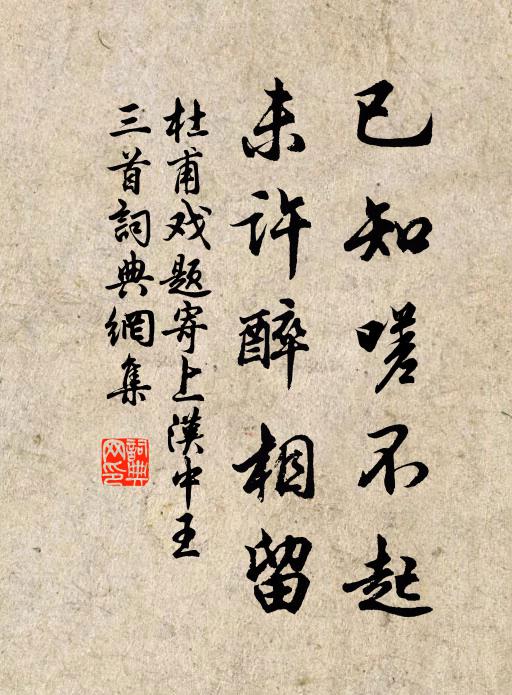 已知嗟不起
未许醉相留
杜甫戏题寄上漢中王
三首詞典網集
詞典网印